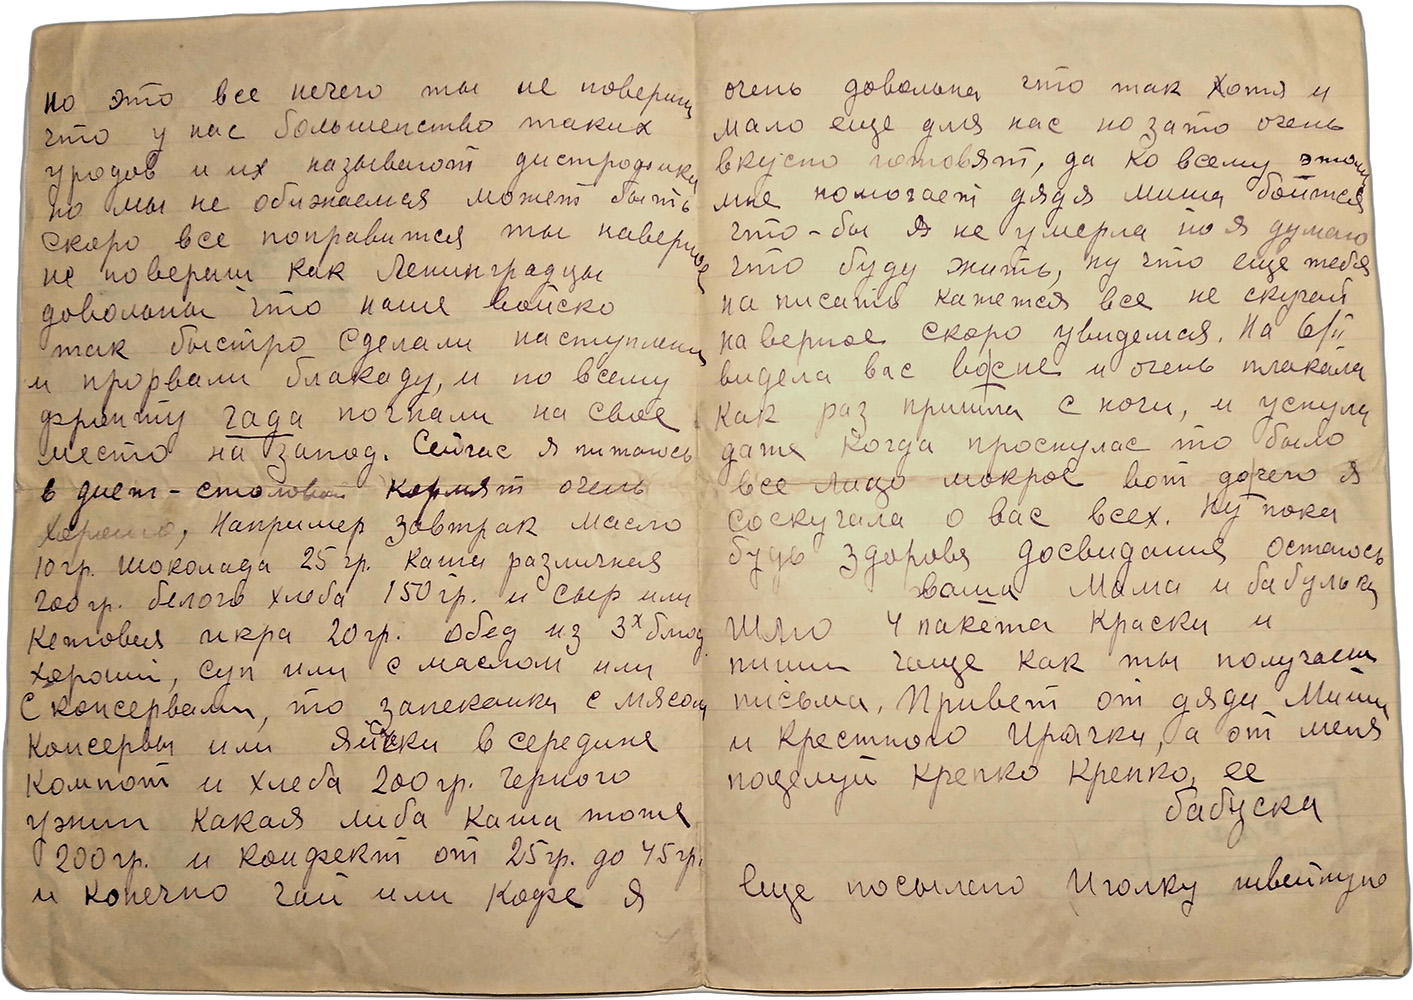 но это все нечего ты не повериш
что у нас большенство таких
уродов и их называют дистрофики
но мы не обижаемся может быть
скоро все поправится ты наверное
не повериш как Ленинградцы
довольны что наше войско
так быстро сделали наступление
и прорвали блакаду, и по всему
фронту гада погнали на свое
место на запад. Сейчас я питаюсь
в диет-столовой кормят очень
хорошо, Например завтрак масло
10 гр. шоколада 25 гр. каша различная
200 гр. белого хлеба 150 гр. и сыр или
кетовая икра 20 гр. обед из 3х блюд
хороший, суп или с маслом или
с консервами, то запеканка с мясом
консервы или яички в середине
компот и хлеба 200 гр. черного
ужин какая либа каша тоже
200 гр. и конфект от 25 гр. до 45 гр.
и конечно чай или кофе я
очень довольна что так хотя и
мало еще для нас но зато очень
вкусно готовят, да ко всему этому
мне помогает дядя миша боится
что-бы я не умерла но я думаю
что буду жить, ну что еще тебе
на писать кажется все не скучай
наверное скоро увидемся. На 6/II
видела вас восне и очень плакала
как раз пришла с ночи, и уснула
даже когда проснулас то было
все лицо мокрое вот дочего я
соскучала о вас всех. Ну пока
будь здорова досвидания остаюсь
ваша Мама и бабулька
Шлю 4 пакета краски и
пиши чаще как ты получаеш
письма, Привет от дяди Миши
и крестного Ирочки, а от меня
поцелуй крепко крепко, ее
бабуска
Еще посылаю Иголку швейную